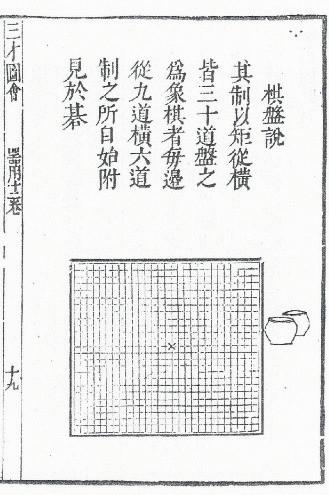 棋盤說
其制以矩從橫
皆三十道盤之
爲象棋者每邊
從九道橫六道
制之所自始附
見於碁
三才圖會
器用十二卷
十九